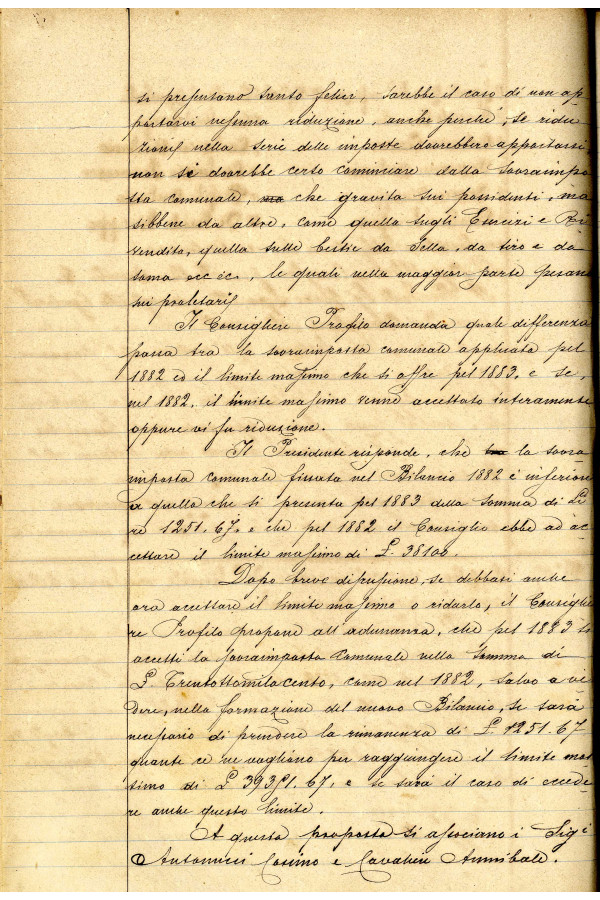 si presentano tanto felici, sarebbe il caso di non ap
portarvi nessuna riduzione, anche perché, se ridu
zioni nella serie delle imposte dovrebbero apportarsi
non si dovrebbe certo cominciare dalla sovraimpo
sta comunale, ma che gravita sui possidenti, ma
sibbene da altre, come quella sugli Esercizi e Ri
vendite, quella sulle bestie da sella, da tiro e da
soma ecc ec., le quali nella maggior parte pesano
sui proletarii
Il Consigliere Profilo domanda quale differenza
passa tra la sovraimposta comunale applicata pel
1882 ed il limite massimo che si offre pel 1883, e se,
nel 1882, il limite massimo venne accettato interamente
oppure vi fu riduzione.
Il Presidente risponde, che la sovra
imposta comunale fissata nel Bilancio 1882 è inferiore
a quella che si presenta pel 1883 della somma di Li
re 1251.67. e che pel 1882 il Consiglio ebbe ad ac
cettare il limite massimo di £. 38100.
Dopo breve discussione, se debbasi anche
ora accettare il limite massimo o ridurlo, il Consiglie
re Profilo propone all'adunanza, che pel 1883 si
accetti la sovraimposta Comunale nella somma di
£. Trentottomilacento, come nel 1882, salvo a ve
dere, nella formazione del nuovo Bilancio, se sarà
necessario di prendere la rimanenza di £. 1251.67
quante ce ne vogliono per raggiungere il limite mas
simo di £ 39351.67, e se sarà il caso di eccede
re anche questo limite.
A questa proposta si associano i Sigi
Antonucci Cosimo e Cavaliere Annibale.